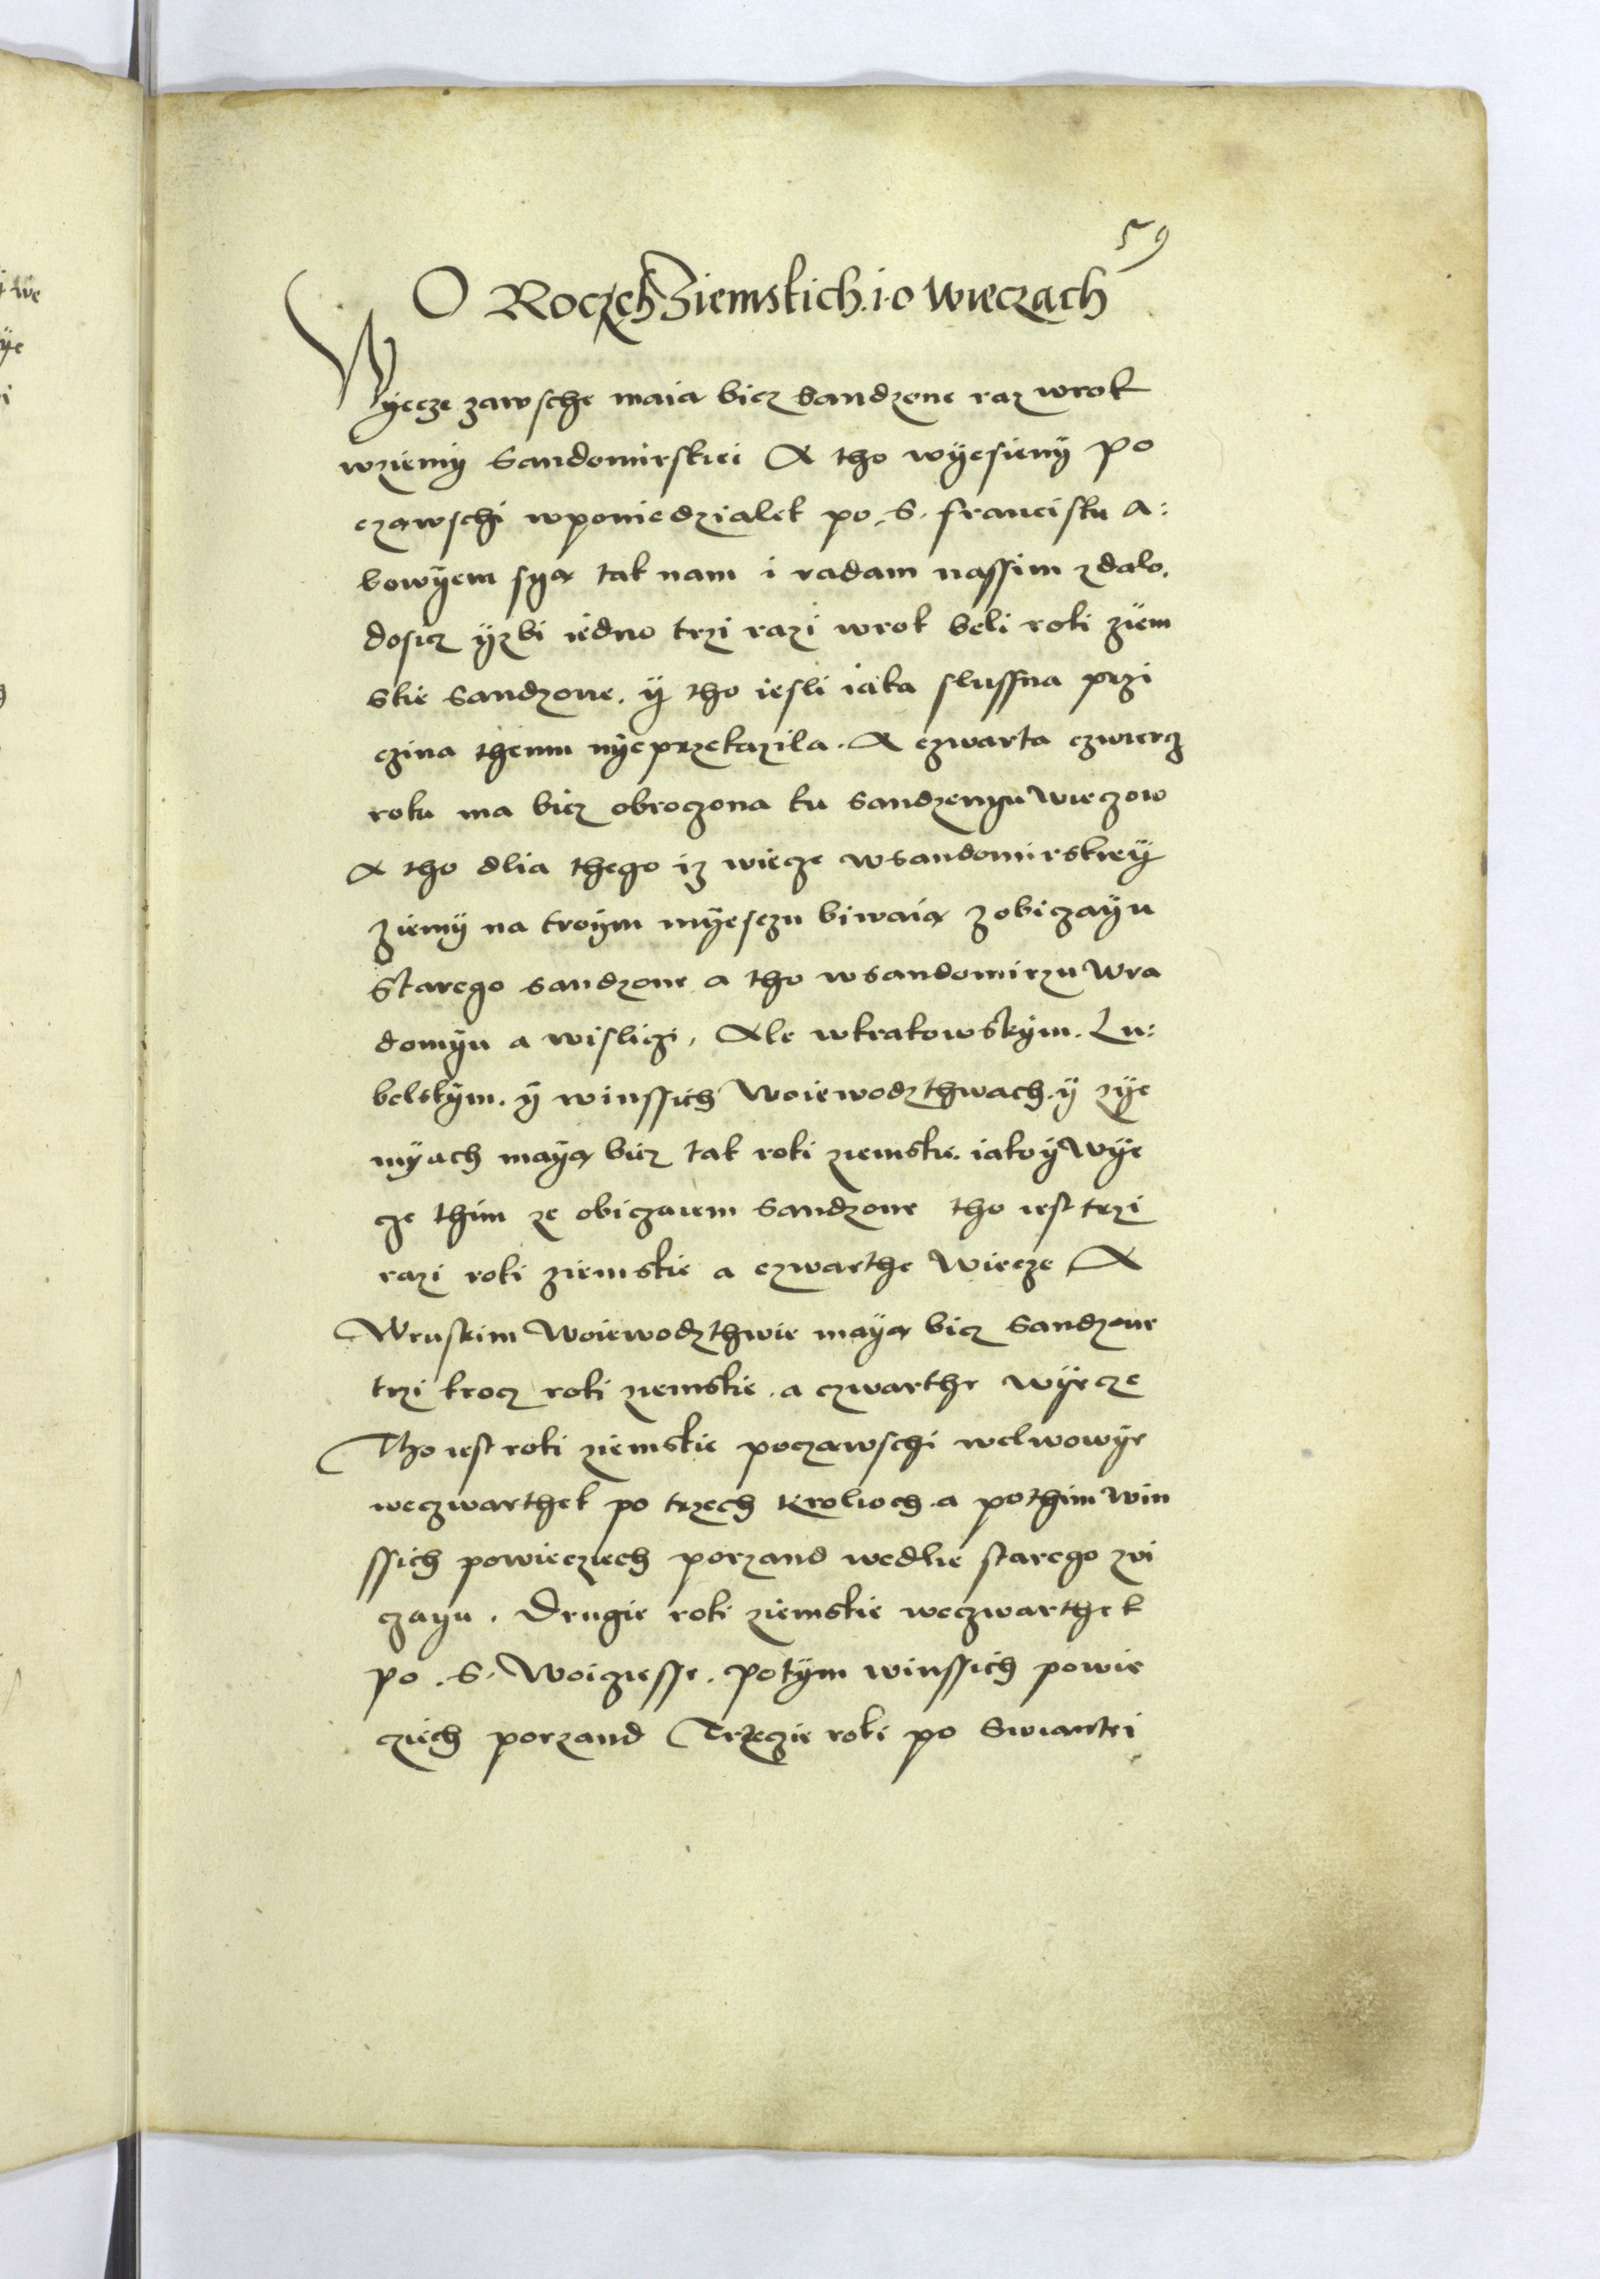 59
O Roczech Ziemskich. i. o wieczach
Wyecze zawsche maią bicz sandzone raz wrok
wziemÿ Sandomirskiei A tho wÿesienÿ po
cząwschi wponiedzialek po. S. franciſku A:
bowÿem syą tak nam i radam naſſim zdalo.
dosicz ÿzbi iedno trzi razi wrok beli roki ziem
skie sandzone. ÿ tho iesli iaka sluſſna przi
czina themu nÿeprzekazila. A czwarta czwiercz
roku ma bicz obroczona ku sandzenyu wieczow
A tho dlia thego iz wiecze wsandomirskieÿ
ziemÿ na troÿm mÿesczu biwaią zobiczaÿu
starego sandzone a tho wsandomirzu wra
domÿu a wislici, Ale wkrakowskÿm. Lu:
belskÿm. ÿ winſſich woiewodzthwach. ÿ zÿe
mÿach maÿą bicz tak roki ziemskie. iako ÿ wÿe
cze thim ze obiczaiem sandzone tho iest trzi
razi roki ziemskie a czwarthe wiecze A
Wruskim woiewodzthwie maÿą bicz sandzone
trzi krocz roki ziemskie. a czwarthe wÿecze
Tho iest roki ziemskie począwschi welwowÿe
weczwarthek po trzech krolioch. a pothim win
ſſich powieciech porzand wedlie starego zwi
czayu. Drugie roki ziemskie weczwarthek
po. S. Woicziesse. potÿm winſſich powie
cziech porzand Trzeczie roki po Swiantei